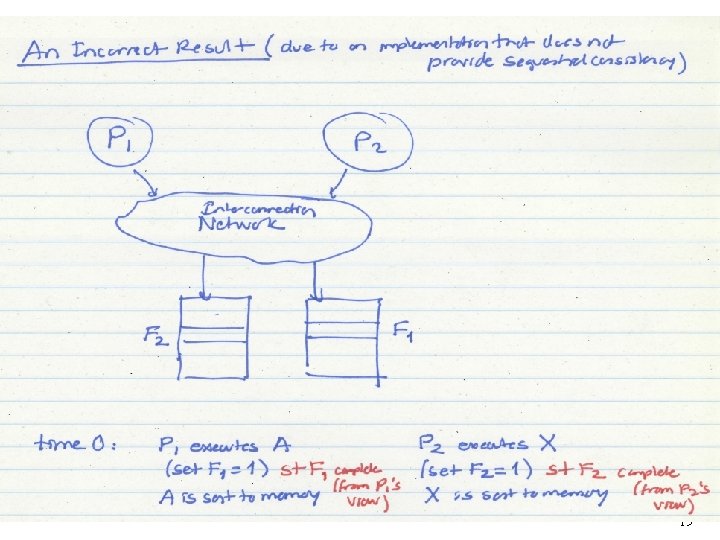 An Incorrect Result (due to an implementation that does not
provide sequential consistency)
P1
P2
Interconnection
Network
F2
F1
time 0:
P1 executes A
(set F1 = 1) st F1 complete
(from P1's
A is sent to memory view)
P2 executes X
(set F2 = 1) st F2 complete
(from P2's
X is sent to memory view)